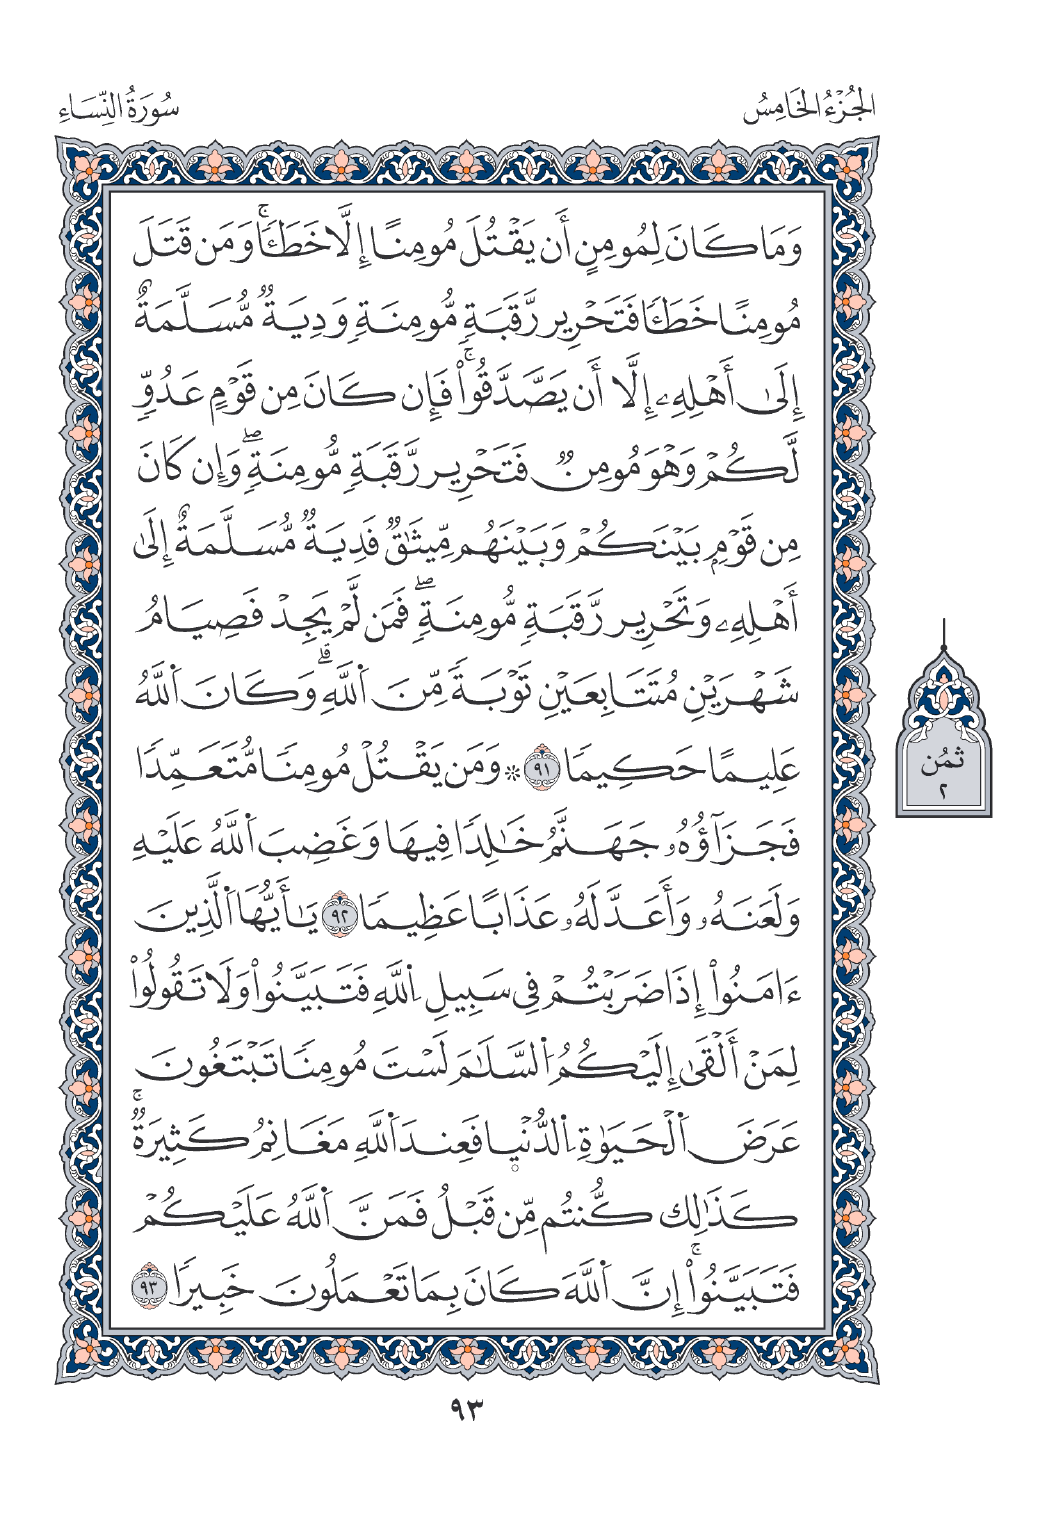 الجُزْءُ الخَامِسُ
سُورَةُ النِّسَاءِ
وَمَا كَانَ لِمُومِنٍ أَن يَقْتُلَ مُومِنًا إِلَّا خَطَـًٔاۚ وَمَن قَتَلَ
مُومِنًا خَطَـًٔا فَتَحْرِيرُ رَّقَبَةٖ مُّومِنَةٖ وَدِيَةٞ مُّسَلَّمَةٌ
إِلَىٰٓ أَهْلِهِۦ إِلَّآ أَن يَصَّدَّقُواْۚ فَإِن كَانَ مِن قَوْمٍ عَدُوّٖ
لَّكُمْ وَهْوَ مُومِنٞ فَتَحْرِيرُ رَّقَبَةٖ مُّومِنَةٖۖ وَإِن كَانَ
مِن قَوْمِۭ بَيْنَكُمْ وَبَيْنَهُم مِّيثَٰقٞ فَدِيَةٞ مُّسَلَّمَةٌ إِلَىٰٓ
أَهْلِهِۦ وَتَحْرِيرُ رَّقَبَةٖ مُّومِنَةٖۖ فَمَن لَّمْ يَجِدْ فَصِيَامُ
شَهْرَيْنِ مُتَتَابِعَيْنِ تَوْبَةٗ مِّنَ اَ۬للَّهِۗ وَكَانَ اَ۬للَّهُ
عَلِيمًا حَكِيمٗا ٩١ ۞ وَمَن يَقْتُلْ مُومِنٗا مُّتَعَمِّدٗا
فَجَزَآؤُهُۥ جَهَنَّمُ خَٰلِدٗا فِيهَا وَغَضِبَ اَ۬للَّهُ عَلَيْهِ
وَلَعَنَهُۥ وَأَعَدَّ لَهُۥ عَذَابًا عَظِيمٗا ٩٢ يَٰٓأَيُّهَا اَ۬لَّذِينَ
ءَامَنُوٓاْ إِذَا ضَرَبْتُمْ فِي سَبِيلِ اِ۬للَّهِ فَتَبَيَّنُواْ وَلَا تَقُولُواْ
لِمَنْ أَلْقَىٰٓ إِلَيْكُمُ اُ۬لسَّلَٰمَ لَسْتَ مُومِنٗا تَبْتَغُونَ
عَرَضَ اَ۬لْحَيَوٰةِ اِ۬لدُّنْيٜا فَعِندَ اَ۬للَّهِ مَغَانِمُ كَثِيرَةٞۚ
كَذَٰلِك كُّنتُم مِّن قَبْلُ فَمَنَّ اَ۬للَّهُ عَلَيْكُمْ
فَتَبَيَّنُوٓاْۚ إِنَّ اَ۬للَّهَ كَانَ بِمَا تَعْمَلُونَ خَبِيرٗا ٩٣
ثُمُن
٢
٩٣